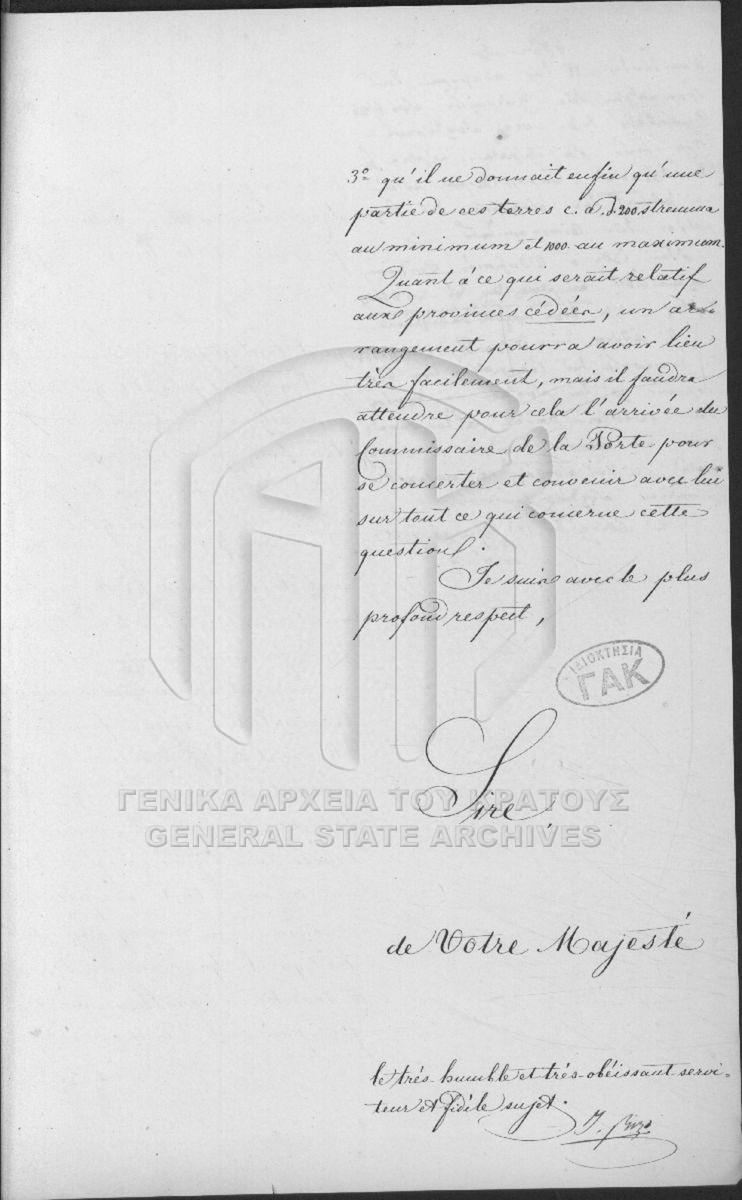 3º qu'il ne donnait enfin qu'une
partie de ces terres c. a. d. 200 stremma
au minimum et 1000 au maximum.
Quant à ce qui serait relatif
aux provinces cédées, un ar-
rangement pourra avoir lieu
très facilement, mais il faudra
attendre pour cela l'arrivée du
Commissaire de la Porte pour
se concerter et convenir avec lui
sur tout ce qui concerne cette
question.
Je suis avec le plus
profond respect,
ΙΔΙΟΚΤΗΣΙΑ
ΓΑΚ
Sire,
ΓΕΝΙΚΑ ΑΡΧΕΙΑ ΤΟΥ ΚΡΑΤΟΥΣ
GENERAL STATE ARCHIVES
de Votre Majesté
le trés-humble et trés-obéissant servi-
teur et fidéle sujet.
J. Rizo